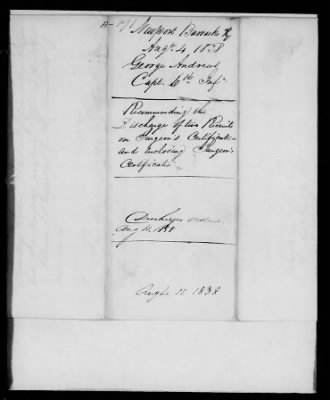 Newport Barracks Ky
Augt. 4, 1838
George Andrews,
Capt. 6th Infy
Recommending the
Discharge of two Recruits
on Surgeon's Certificate
and enclosing Surgeon's
Certificate
Discharges ordered
Aug 11. 1838
Augt. 11. 1838